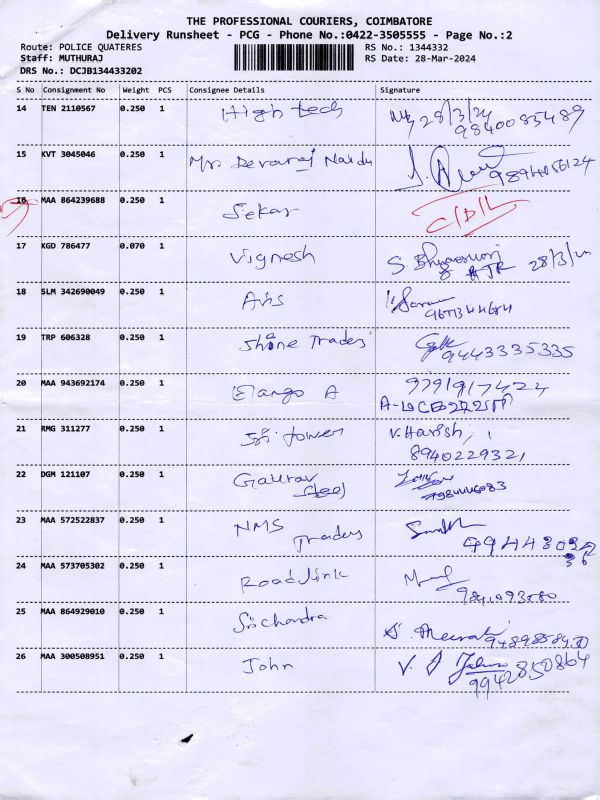 THE PROFESSIONAL COURIERS, COIMBATORE
Delivery Runsheet - PCG - Phone No.:0422-3505555 - Page No.:2
Route: POLICE QUATERES RS No.: 1344332
Staff: MUTHURAJ RS Date: 28-Mar-2024
DRS No.: DCJB134433202
S No Consignment No Weight PCS Consignee Details Signature
14 TEN 2110567 0.250 1 High tech 28/3/24
9840085489
15 KVT 3045046 0.250 1 Mr. Devaraj Naidu
9894056124
16 MAA 864239688 0.250 1 Sekar
17 KGD 786477 0.070 1 Vignesh S. 28/3/
18 SLM 342690049 0.250 1
9677344684
19 TRP 606328 0.250 1 Shine Traders
9443335335
20 MAA 943692174 0.250 1 Elango A 9791917424
21 RMG 311277 0.250 1 Sri tower V. Harish,
8940229321
22 DGM 121107 0.250 1 Gaurav
Steel
23 MAA 572522837 0.250 1 NMS
Traders
24 MAA 573705302 0.250 1 Roadlink
25 MAA 864929010 0.250 1 Sri chandra
26 MAA 300508951 0.250 1 John V.
9942850864